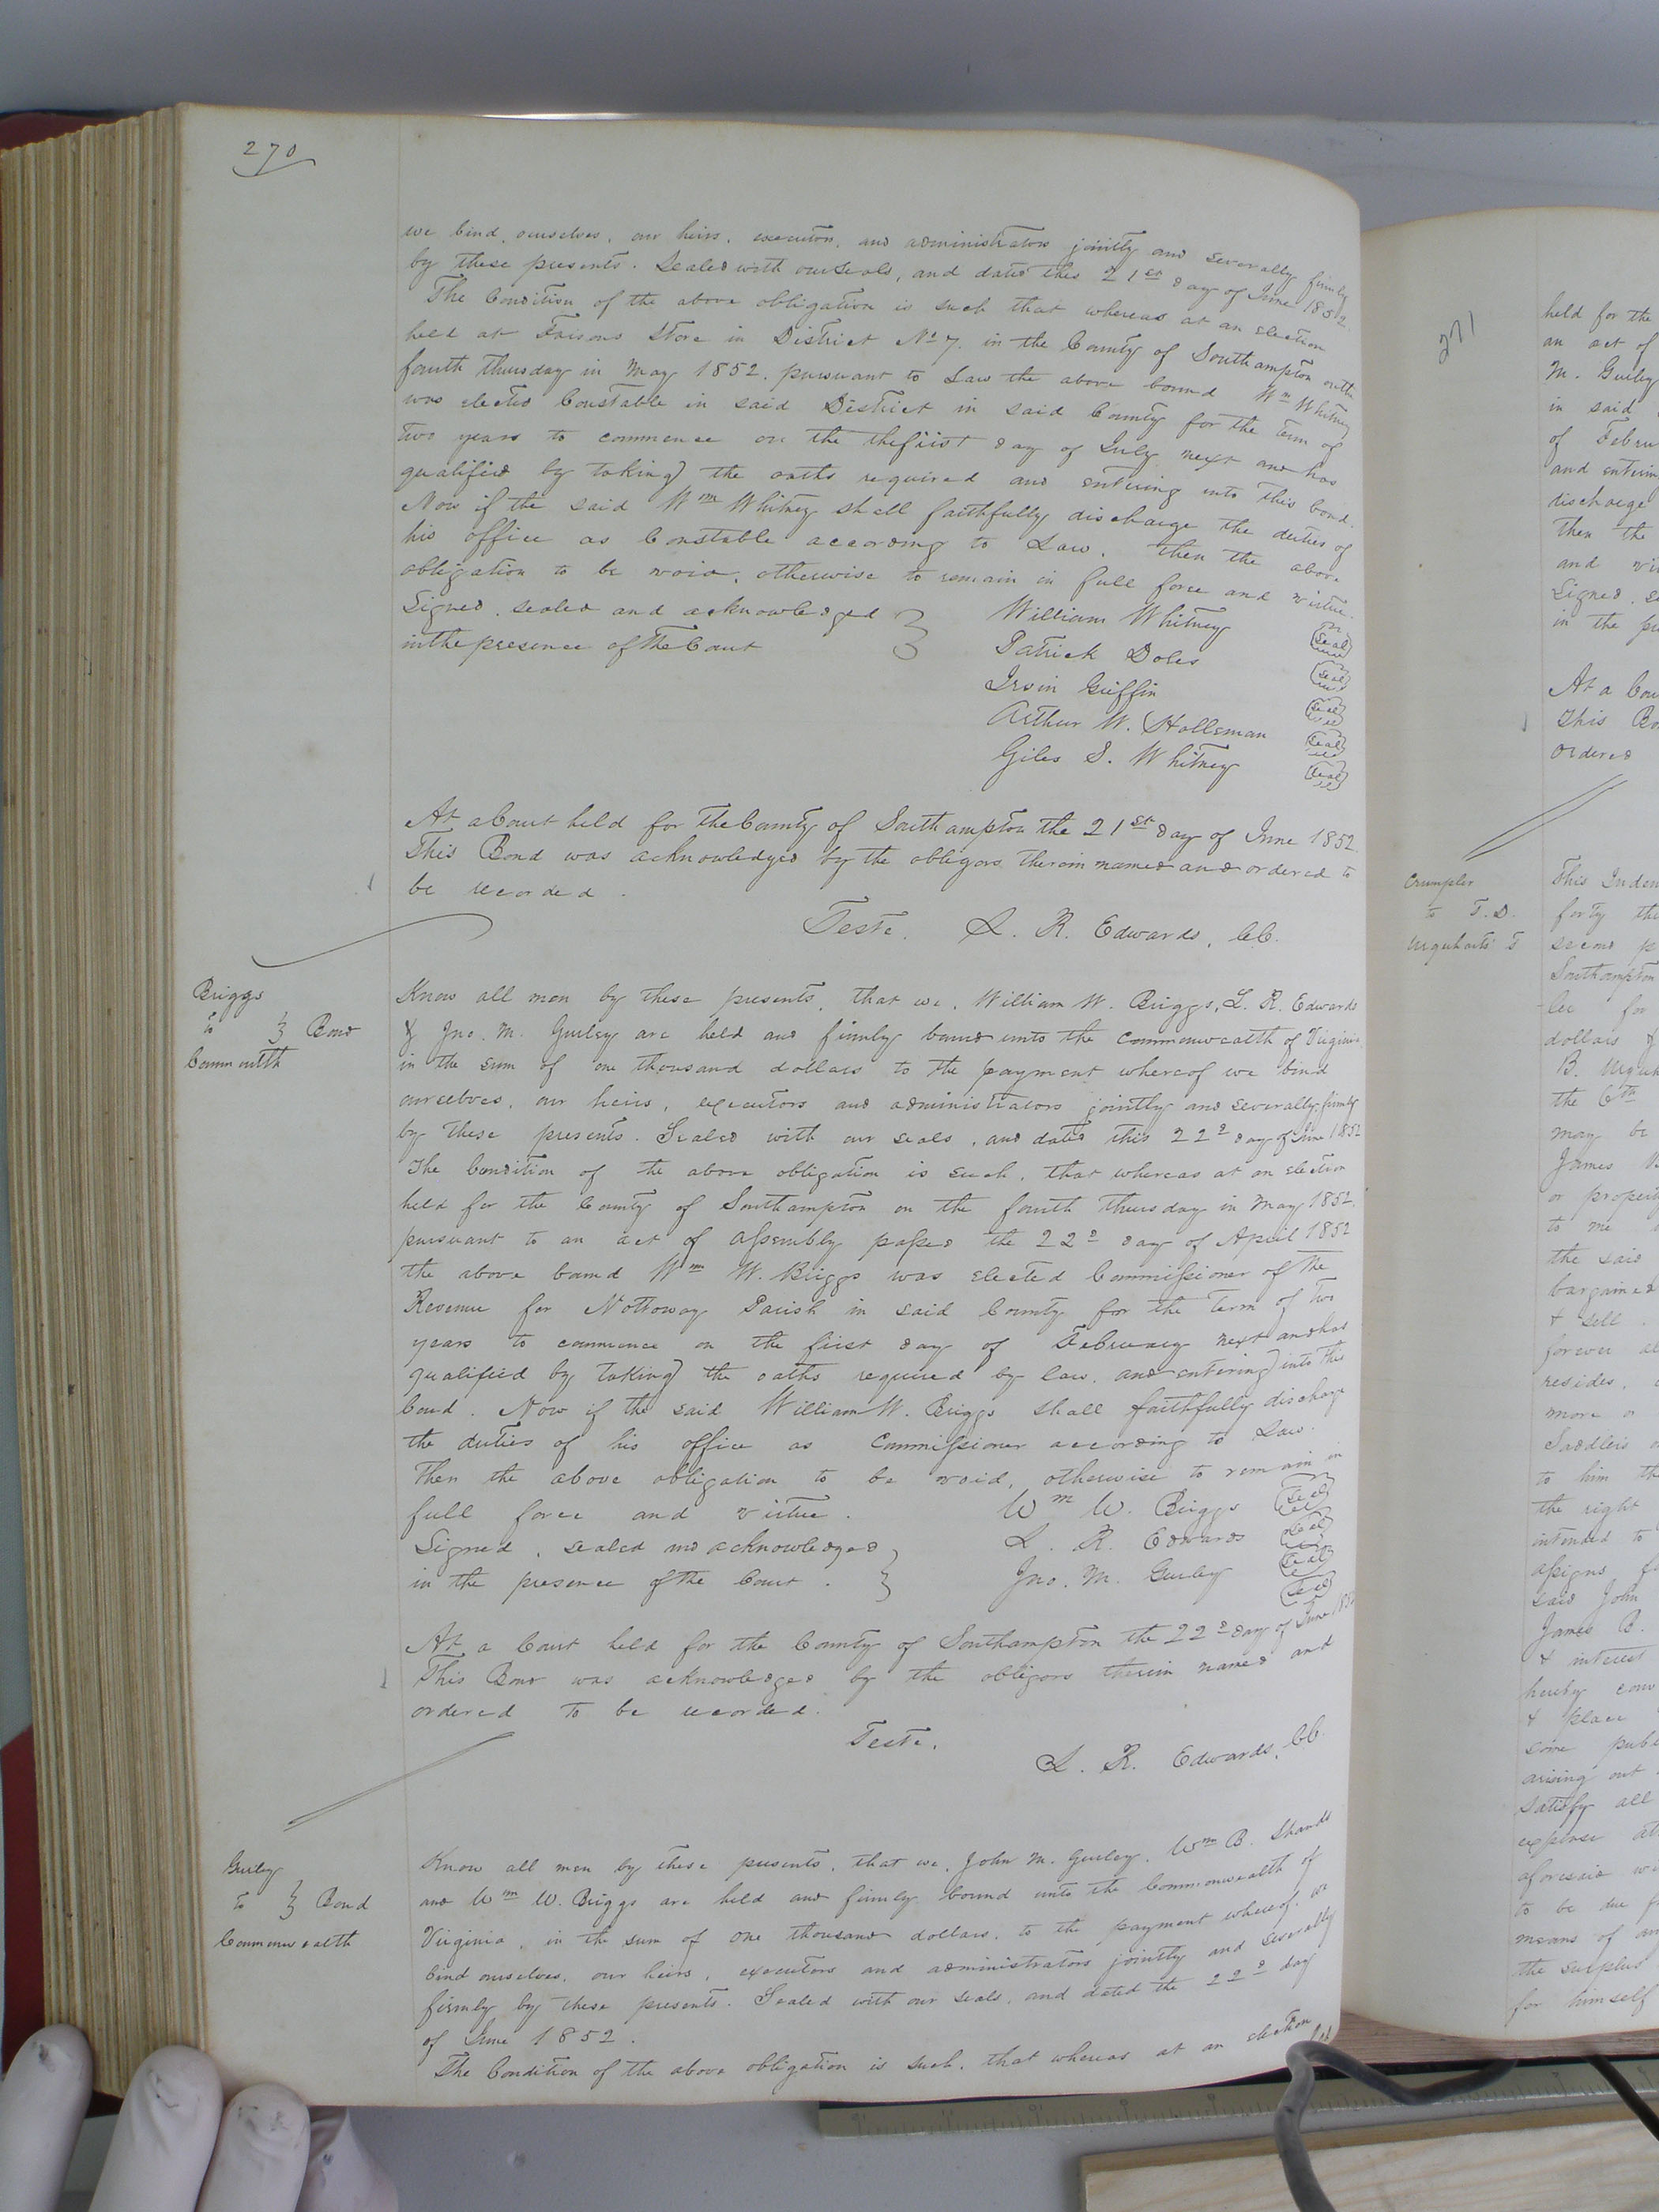 270
we bind, ourselves, our heirs, executors, and administrators jointly and severally firmly
by these presents. Sealed with our seals, and dated this 21st day of June 1852.
The Condition of the above obligation is such that whereas at an election
held at Faisons Store in District No 7. in the County of Southampton on the
fourth thursday in May 1852. pursuant to Law the above bound Wm Whitney
was elected Constable in said District in said County for the term of
two years to commence on the the first day of July next and has
qualified by taking the oaths required and entering into this bond.
Now if the said Wm Whitney shall faithfully discharge the duties of
his office as Constable according to Law, then the above
obligation to be void, otherwise to remain in full force and virtue.
Signed, sealed and acknowledged
in the presence of the Court
William Whitney Seal
Patrick Doles Seal
Irvin Griffin Seal
Arthur W. Holleman Seal
Giles S. Whitney Seal
At a Court held for the County of Southampton the 21st day of June 1852.
This Bond was acknowledged by the obligors therein named and ordered to
be recorded.
Teste. L. R. Edwards, CC.
Briggs
to } Bond
Commwlth
Know all men by these presents, that we, William W. Briggs, L. R. Edwards
& Jno. M. Gurley are held and firmly bound unto the Commonwealth of Virginia
in the sum of one thousand dollars to the payment whereof we bind
ourselves, our heirs, executors and administrators jointly and severally, firmly
by these presents. Sealed with our seals, and dated this 22d day of June 1852
The Condition of the above obligation is such, that whereas at an election
held for the County of Southampton on the fourth thursday in May 1852.
pursuant to an act of Assembly passed the 22d day of April 1852
the above bound Wm W. Briggs was elected Commissioner of the
Revenue for Nottoway Parish in said County for the term of two
years to commence on the first day of February next and has
qualified by taking the oaths required by law, and entering into this
bond. Now if the said William W. Briggs shall faithfully discharge
the duties of his office as Commissioner according to Law.
Then the above obligation to be void, otherwise to remain in
full force and virtue.
Signed, sealed and acknowledged
in the presence of the Court.
Wm W. Briggs Seal
L. R. Edwards Seal
Jno. M. Gurley Seal
Seal
At a Court held for the County of Southampton the 22d day of June 1852
This Bond was acknowledged by the obligors therein named and
ordered to be recorded.
Teste.
L. R. Edwards, CC.
Gurley
to } Bond
Commonwealth
Know all men by these presents, that we, John M. Gurley, Wm B. Shands
and Wm W. Briggs are held and firmly bound unto the Commonwealth of
Virginia, in the sum of One thousand dollars, to the payment whereof, we
bind ourselves, our heirs, executors and administrators jointly and severally
firmly by these presents. Sealed with our seals, and dated the 22d day
of June 1852.
The Condition of the above obligation is such, that whereas at an election
271
held for the
an act of
M. Gurley
in said
of Febru
and enterin
discharge
then the
and vi
Signed, s
in the pr
At a Cou
This Bo
ordered
Crumpler
to T. D.
Urquharts T
This Inden
forty th
second p
Southampton
lee for
dollars
B. Urqu
the 6th
may be
James B
or property
to me
the said
bargained
& sell
forever al
resides,
more o
Saddlers
to him th
the right
intended to
assigns f
said John
James B.
& interest
hereby conv
& place
some publ
arising out
Satisfy all
expense at
aforesaid w
to be due
means of an
the surplus
for himself